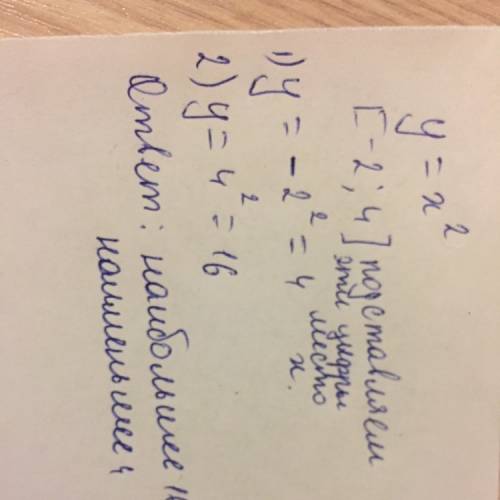 y = x²
[-2; 4] подставляем
эти цифры
место
x.
1) y = -2² = 4
2) y = 4² = 16
Ответ: наибольшее 16
наименьшее 4